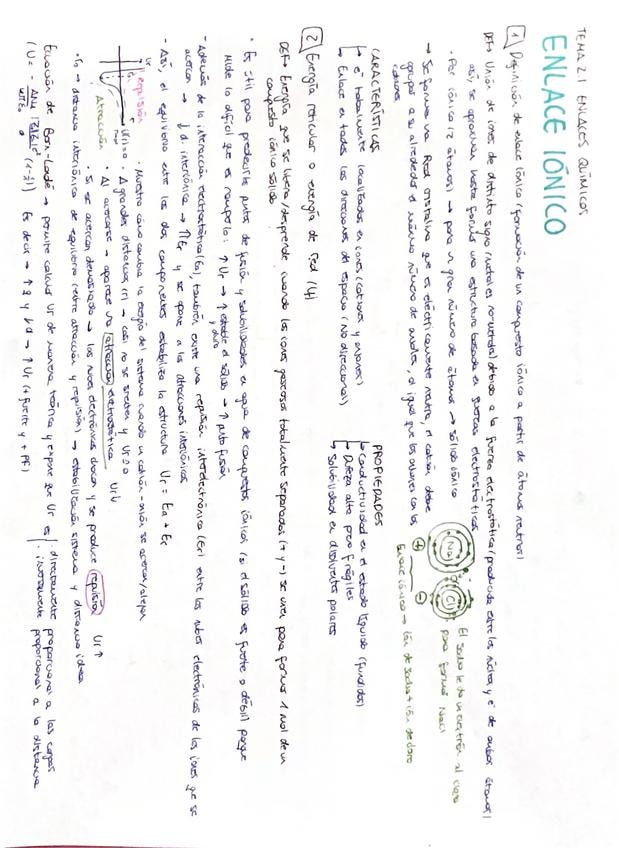 TEMA 2.1 ENLACES QUÍMICOS
ENLACE IÓNICO
1 Definición de enlace iónico (formación de un compuesto iónico a partir de átomos neutros)
DEF→ Unión de iones de distinto signo (metal es no metal) debido a la fuerza electrostática (producida entre los núcleos y e⁻ de ambos átomos)
así, se aproximan hasta formar una estructura basada en fuerzas electrostáticas
· Par iónico (2 átomos) → para un gran número de átomos → sólido iónico
→ Se forma una Red cristalina que es eléctricamente neutra, el catión debe
agrupar a su alrededor el máximo número de aniones, al igual que los aniones con los
cationes
Na
Cl
+
−
El sodio le da un electrón al cloro
para formar NaCl
Enlace iónico → ión de sodio + ión de cloro
CARACTERÍSTICAS
↳ e⁻ totalmente localizados en iones (cationes y aniones)
↳ Enlace en todas las direcciones del espacio (No direccional)
PROPIEDADES
↳ Conductividad en el estado líquido (fundidos)
↳ Dureza alta pero frágiles
↳ Solubilidad en disolventes polares
2 Energía reticular o energía de red (U)
DEF→ Energía que se libera/desprende cuando los iones gaseosos totalmente separados (+ y −) se unen para formar 1 mol de un
compuesto iónico sólido
· Es útil para predecir la punto de fusión y solubilidades en agua de compuestos iónicos (si el sólido es fuerte o débil) porque
mide lo difícil que es romperlo: ↑ Ur → ↑ estable el sólido → ↑ pto fusión
y duro
· Además de la interacción electrostática (Ea), también existe una repulsión interelectrónica (Er) entre las nubes electrónicas de los iones que se
acercan → ↓ d. interiónica → ↑ Er y se opone a la atracciones interiónicas
· Así, el equilibrio entre las dos componentes estabiliza la estructura Ur = Ea + Er
Ur
repulsión
Ur=0
Atracción
· Muestra cómo cambia la energía de sistema cuando un catión-anión se acercan/alejan
· A grandes distancias (r) → casi no se sienten y Ur ≈ 0
· Al acercarse → aparece una atracción electrostática Ur↓
· Si se acercan demasiado → las nubes electrónicas chocan y se produce repulsión Ur ↑
· r₀ → distancia interiónica de equilibrio (entre atracción y repulsión) → estabilización sistema y distancia ideal
Ecuación de Born-Landé → permite calcular Ur de manera teórica y expone que Ur es directamente proporcional a las cargas
inversamente proporcional a la distancia
Es decir → ↑ q y ↓ d → ↑ Ur (+ fuerte y + PF)